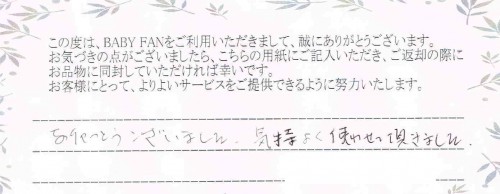 この度は、BABY FANをご利用いただきまして、誠にありがとうございます。
お気づきの点がございましたら、こちらの用紙にご記入いただき、ご返却の際に
お品物に同封していただければ幸いです。
お客様にとって、よりよいサービスをご提供できるように努力いたします。
ありがとうございました。気持よく使わせて頂きました。